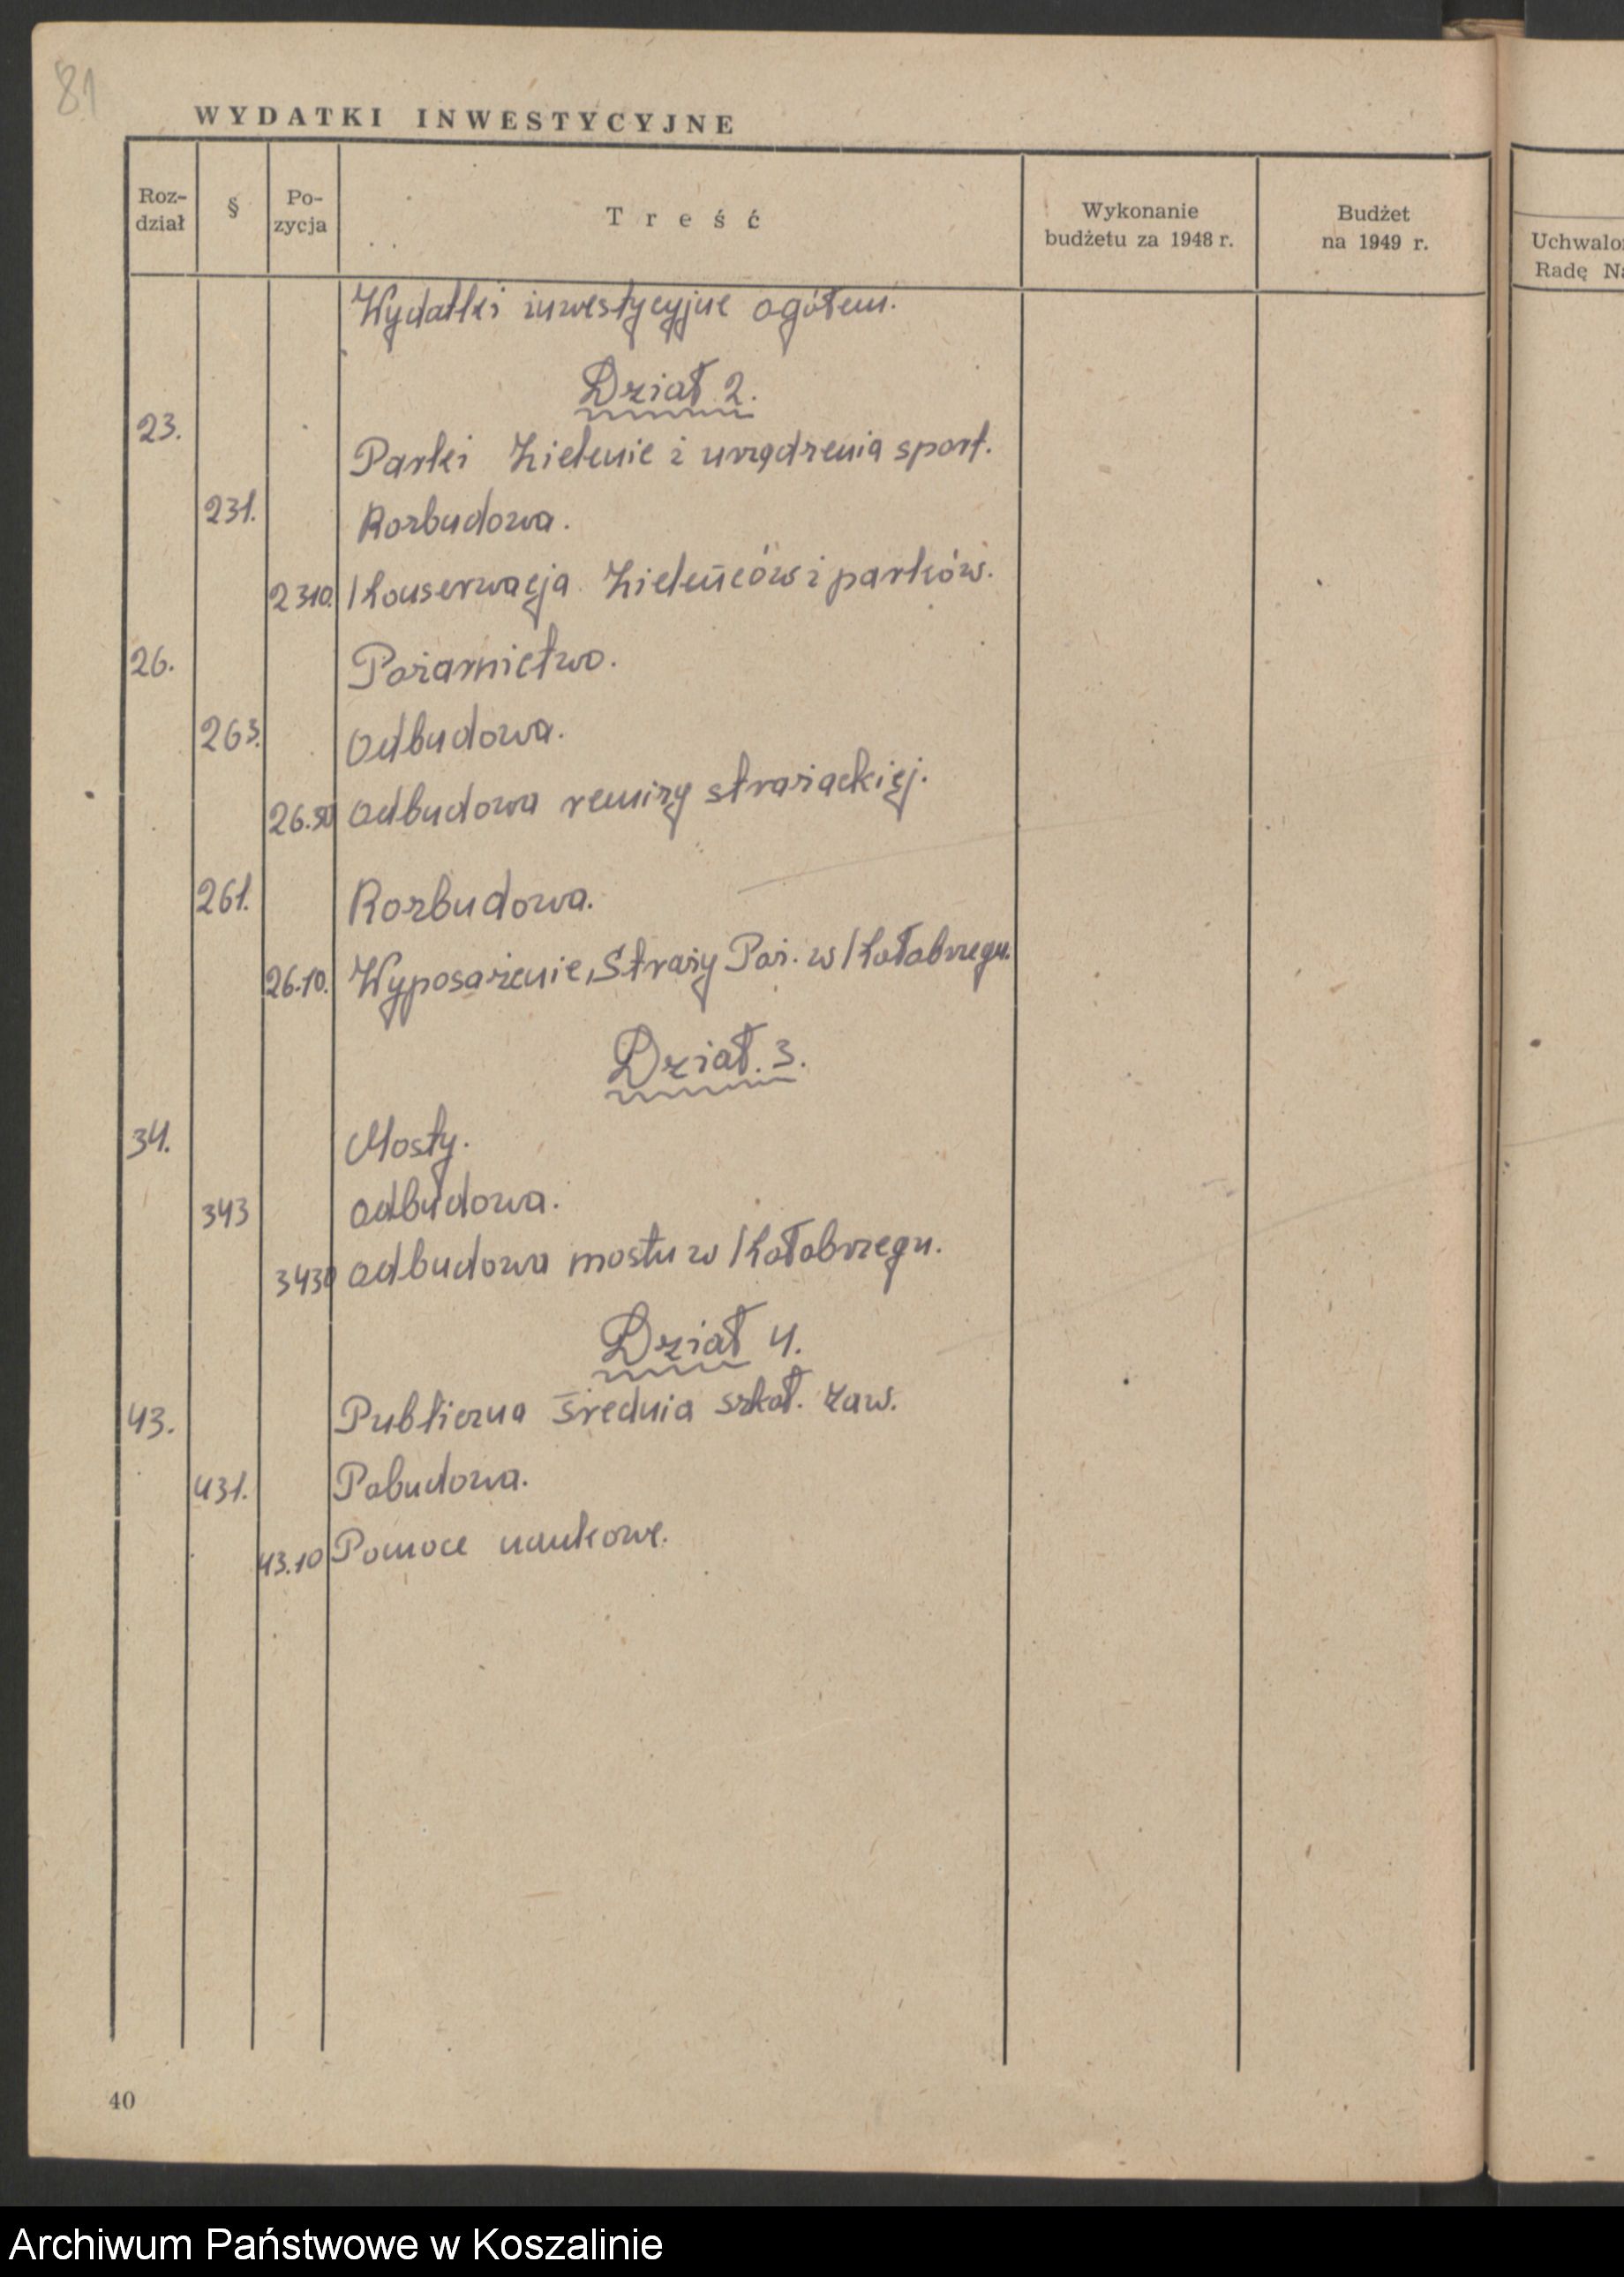 81
WYDATKI INWESTYCYJNE
Roz-
dział
§
Po-
zycja
Treść
Wykonanie
budżetu za 1948 r.
Budżet
na 1949 r.
Uchwalo
Radę Na
Wydatki inwestycyjne ogółem.
Dział 2.
23. Parki Zielenie i urządzenia sport.
231. Rozbudowa.
2310. Konserwacja Zieleńców i parków.
26. Pożarnictwo.
263. Odbudowa.
26.30 Odbudowa remizy strażackiej.
261. Rozbudowa.
26.10. Wyposażenie, Straży Poż. w Kołobrzegu.
Dział. 3.
34. Mosty.
343 Odbudowa.
3430 Odbudowa mostu w Kołobrzegu.
Dział 4.
43. Publiczna Średnia szkoł. zaw.
431. Pobudowa.
43.10 Pomoce naukowe.
40
Archiwum Państwowe w Koszalinie